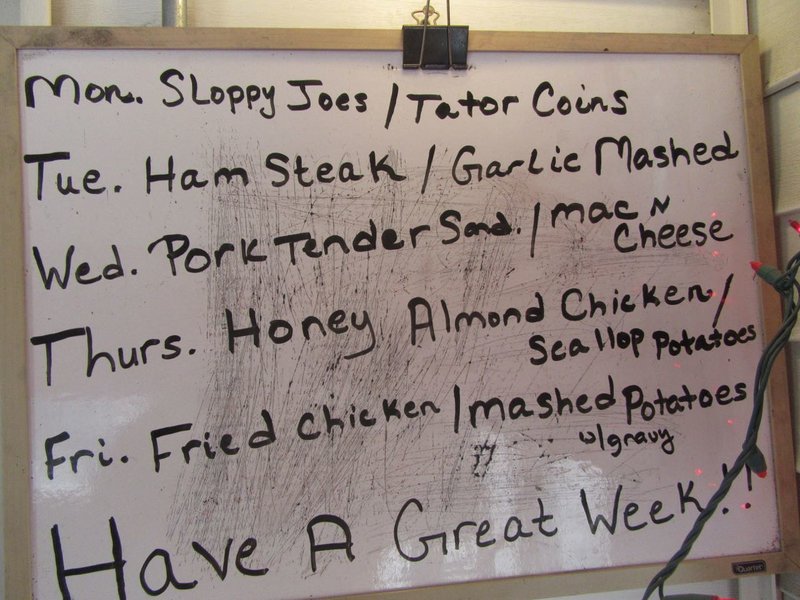 Mon. Sloppy Joes / Tator Coins
Tue. Ham Steak / Garlic Mashed
Wed. Pork Tender Sand. / Mac N
Cheese
Thurs. Honey Almond Chicken /
Scallop Potatoes
Fri. Fried Chicken / Mashed Potatoes
w/gravy
Have A Great Week!!
Quartet